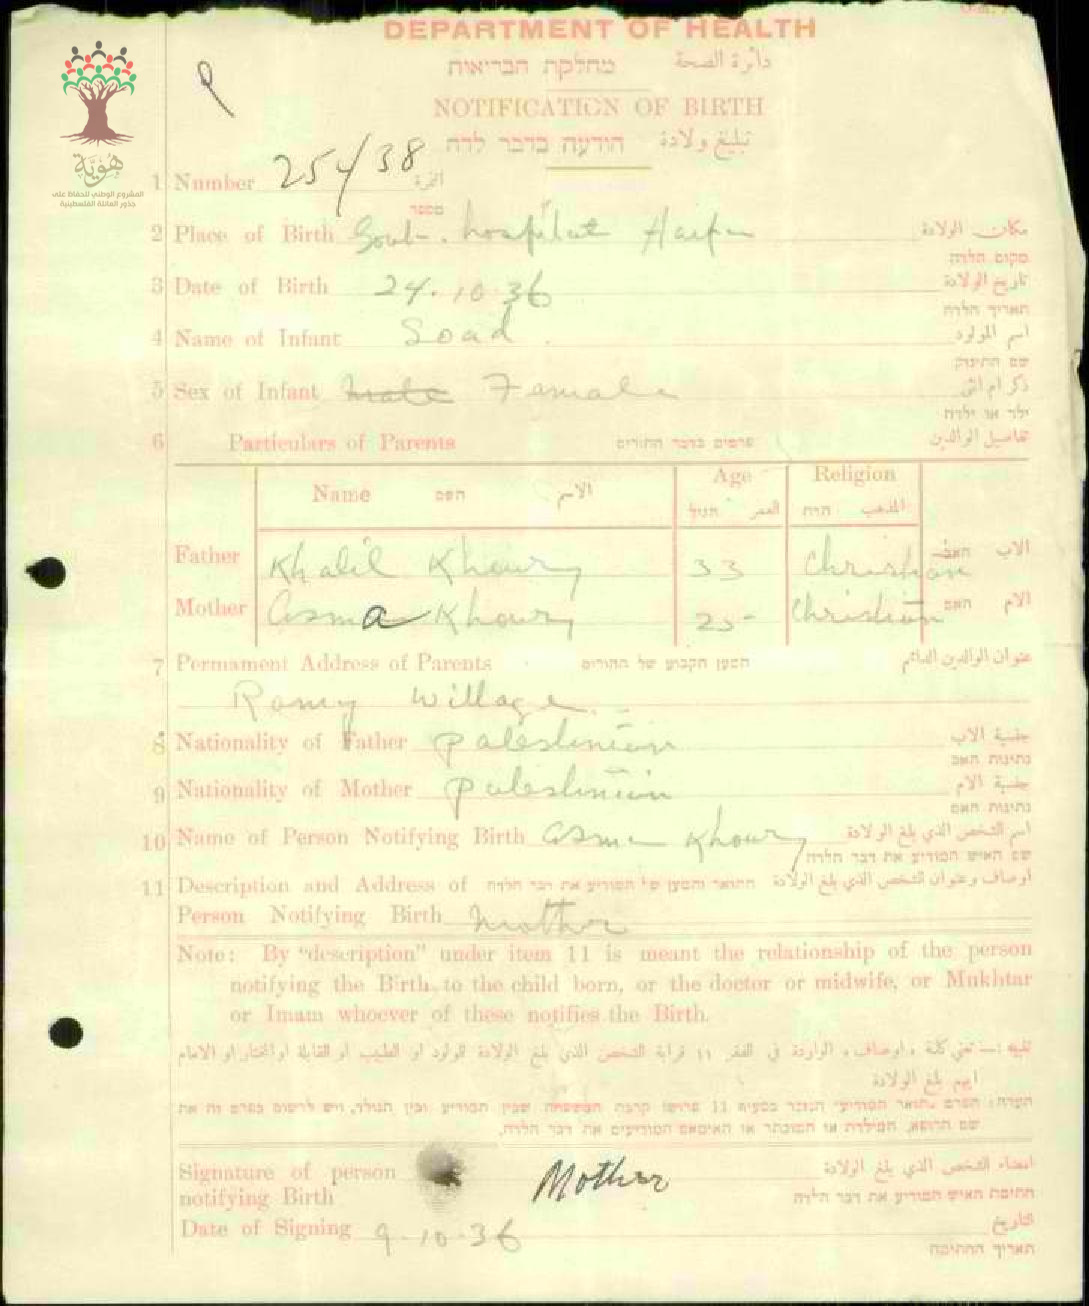 DEPARTMENT OF HEALTH
מחלקת הבריאות دائرة الصحة
NOTIFICATION OF BIRTH
הודעה בדבר לדה تبليغ ولادة
هوية
المشروع الوطني للحفاظ على
جذور العائلة الفلسطينية
1 Number 254/38 النمرة
מספר
2 Place of Birth Govt. hospital Haifa مكان الولادة
מקום הלדה
3 Date of Birth 24.10.36 تاريخ الولادة
תאריך הלדה
4 Name of Infant Soad. اسم المولود
שם התינוק
5 Sex of Infant Male Female ذكر ام انثى
ילד או ילדה
6 Particulars of Parents פרטים בדבר ההורים تفاصيل الوالدين
Name השם الاسم Age הגיל العمر Religion הדת المذهب
Father Khalil Khoury 33 Christian האב الاب
Mother Asma Khoury 25 Christian האם الام
7 Permament Address of Parents המען הקבוע של ההורים عنوان الوالدين الدائم
Ramy Willage
8 Nationality of Father Palestinian جنسية الاب
נתינות האב
9 Nationality of Mother Palestinian جنسية الام
נתינות האם
10 Name of Person Notifying Birth Asma Khoury اسم الشخص الذي بلغ الولادة
שם האיש המודיע את דבר הלדה
11 Description and Address of התואר והמען של המודיע את דבר הלדה اوصاف وعنوان الشخص الذي بلغ الولادة
Person Notifying Birth Mother
Note: By "description" under item 11 is meant the relationship of the person
notifying the Birth, to the child born, or the doctor or midwife, or Mukhtar
or Imam whoever of these notifies the Birth.
تنبيه :— تعني كلمة « اوصاف » الواردة في الفقرة ١١ قرابة الشخص الذي بلغ الولادة للولد او الطبيب او القابلة او المختار او الامام
ايهم بلغ الولادة
הערה: השם "תואר המודיע" הנזכר בסעיף 11 פרושו קרבת המשפחה שבין המודיע ובין הנולד, ויש לרשום בפרט זה את
שם הרופא, המילדת או המוכתר או האימאם המודיעים את דבר הלדה.
Signature of person Mother امضاء الشخص الذي بلغ الولادة
notifying Birth חתימת האיש המודיע את דבר הלדה
Date of Signing 9.10.36 التاريخ
תאריך החתימה